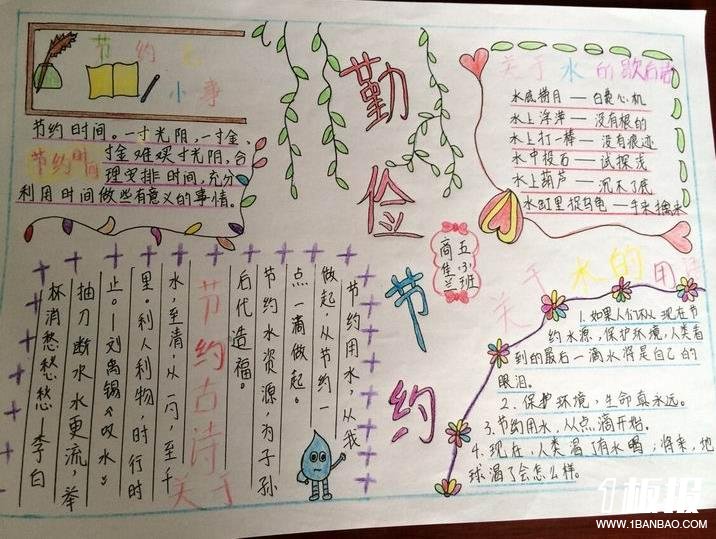 节约之
小事
节约时间。一寸光阴,一寸金、
节约时间
寸金难买寸光阴,合
理安排时间,充分
利用时间做些有意义的事情。
勤俭节约
五(3)班
商佳兰
关于水的歇后语
水底捞月——白费心机
水上浮萍——没有根的
水上打一棒——没有痕迹
水中投石——试探浅
水上葫芦——沉不下底
水缸里捉乌龟——手来擒来
节约用水,从我
做起,从节约一
点一滴做起。
节约水资源,为子孙
后代造福。
关于节约古诗
水,至清,从一勺,至千
里。利人利物时行时
止。——刘禹锡《叹水》
抽刀断水水更流,举
杯消愁愁愁——李白
关于水的用语
1.如果人们不从现在节
约水源,保护环境,人类看
到的最后一滴水将是自己的
眼泪。
2.保护环境,生命真永远。
3.节约用水,从点滴开始。
4.现在,人类渴了有水喝;将来,地
球渴了会怎么样。
1板报
WWW.1BANBAO.COM